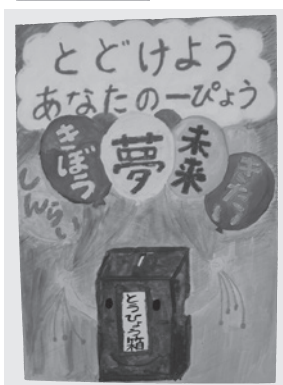 とどけよう
あなたの一ぴょう
きぼう
夢
未来
きたい
しんらい
とうひょう箱